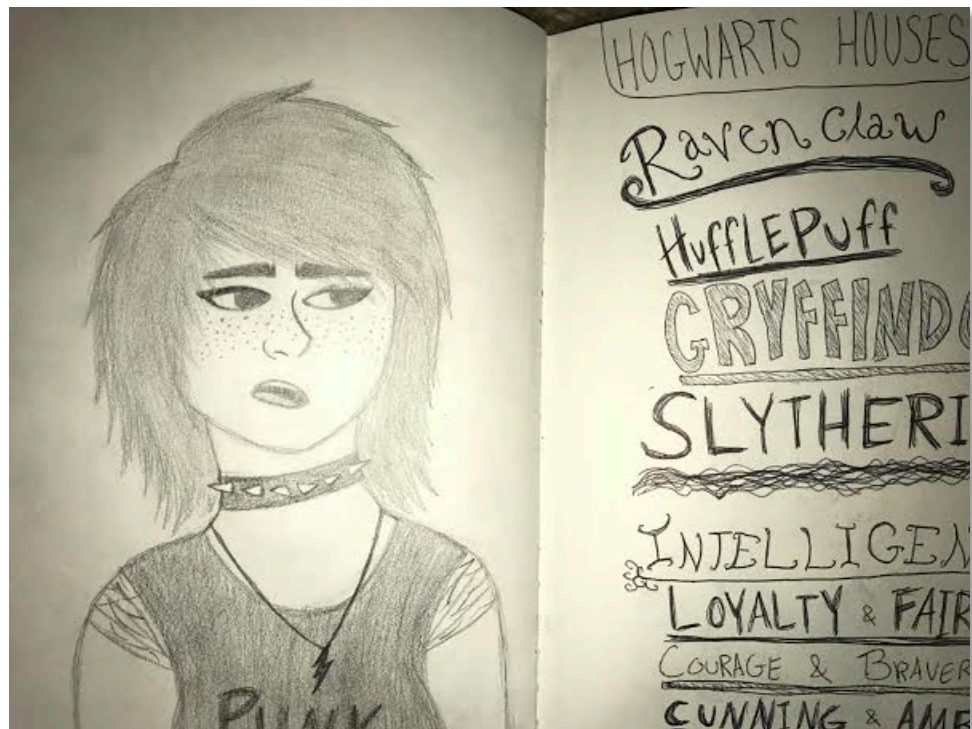 PUNK
HOGWARTS HOUSES
RavenClaw
HufflEPuff
GRYFFINDO
SLYTHERI
INTELLIGEN
LOYALTY & FAIR
COURAGE & BRAVER
CUNNING & AMB